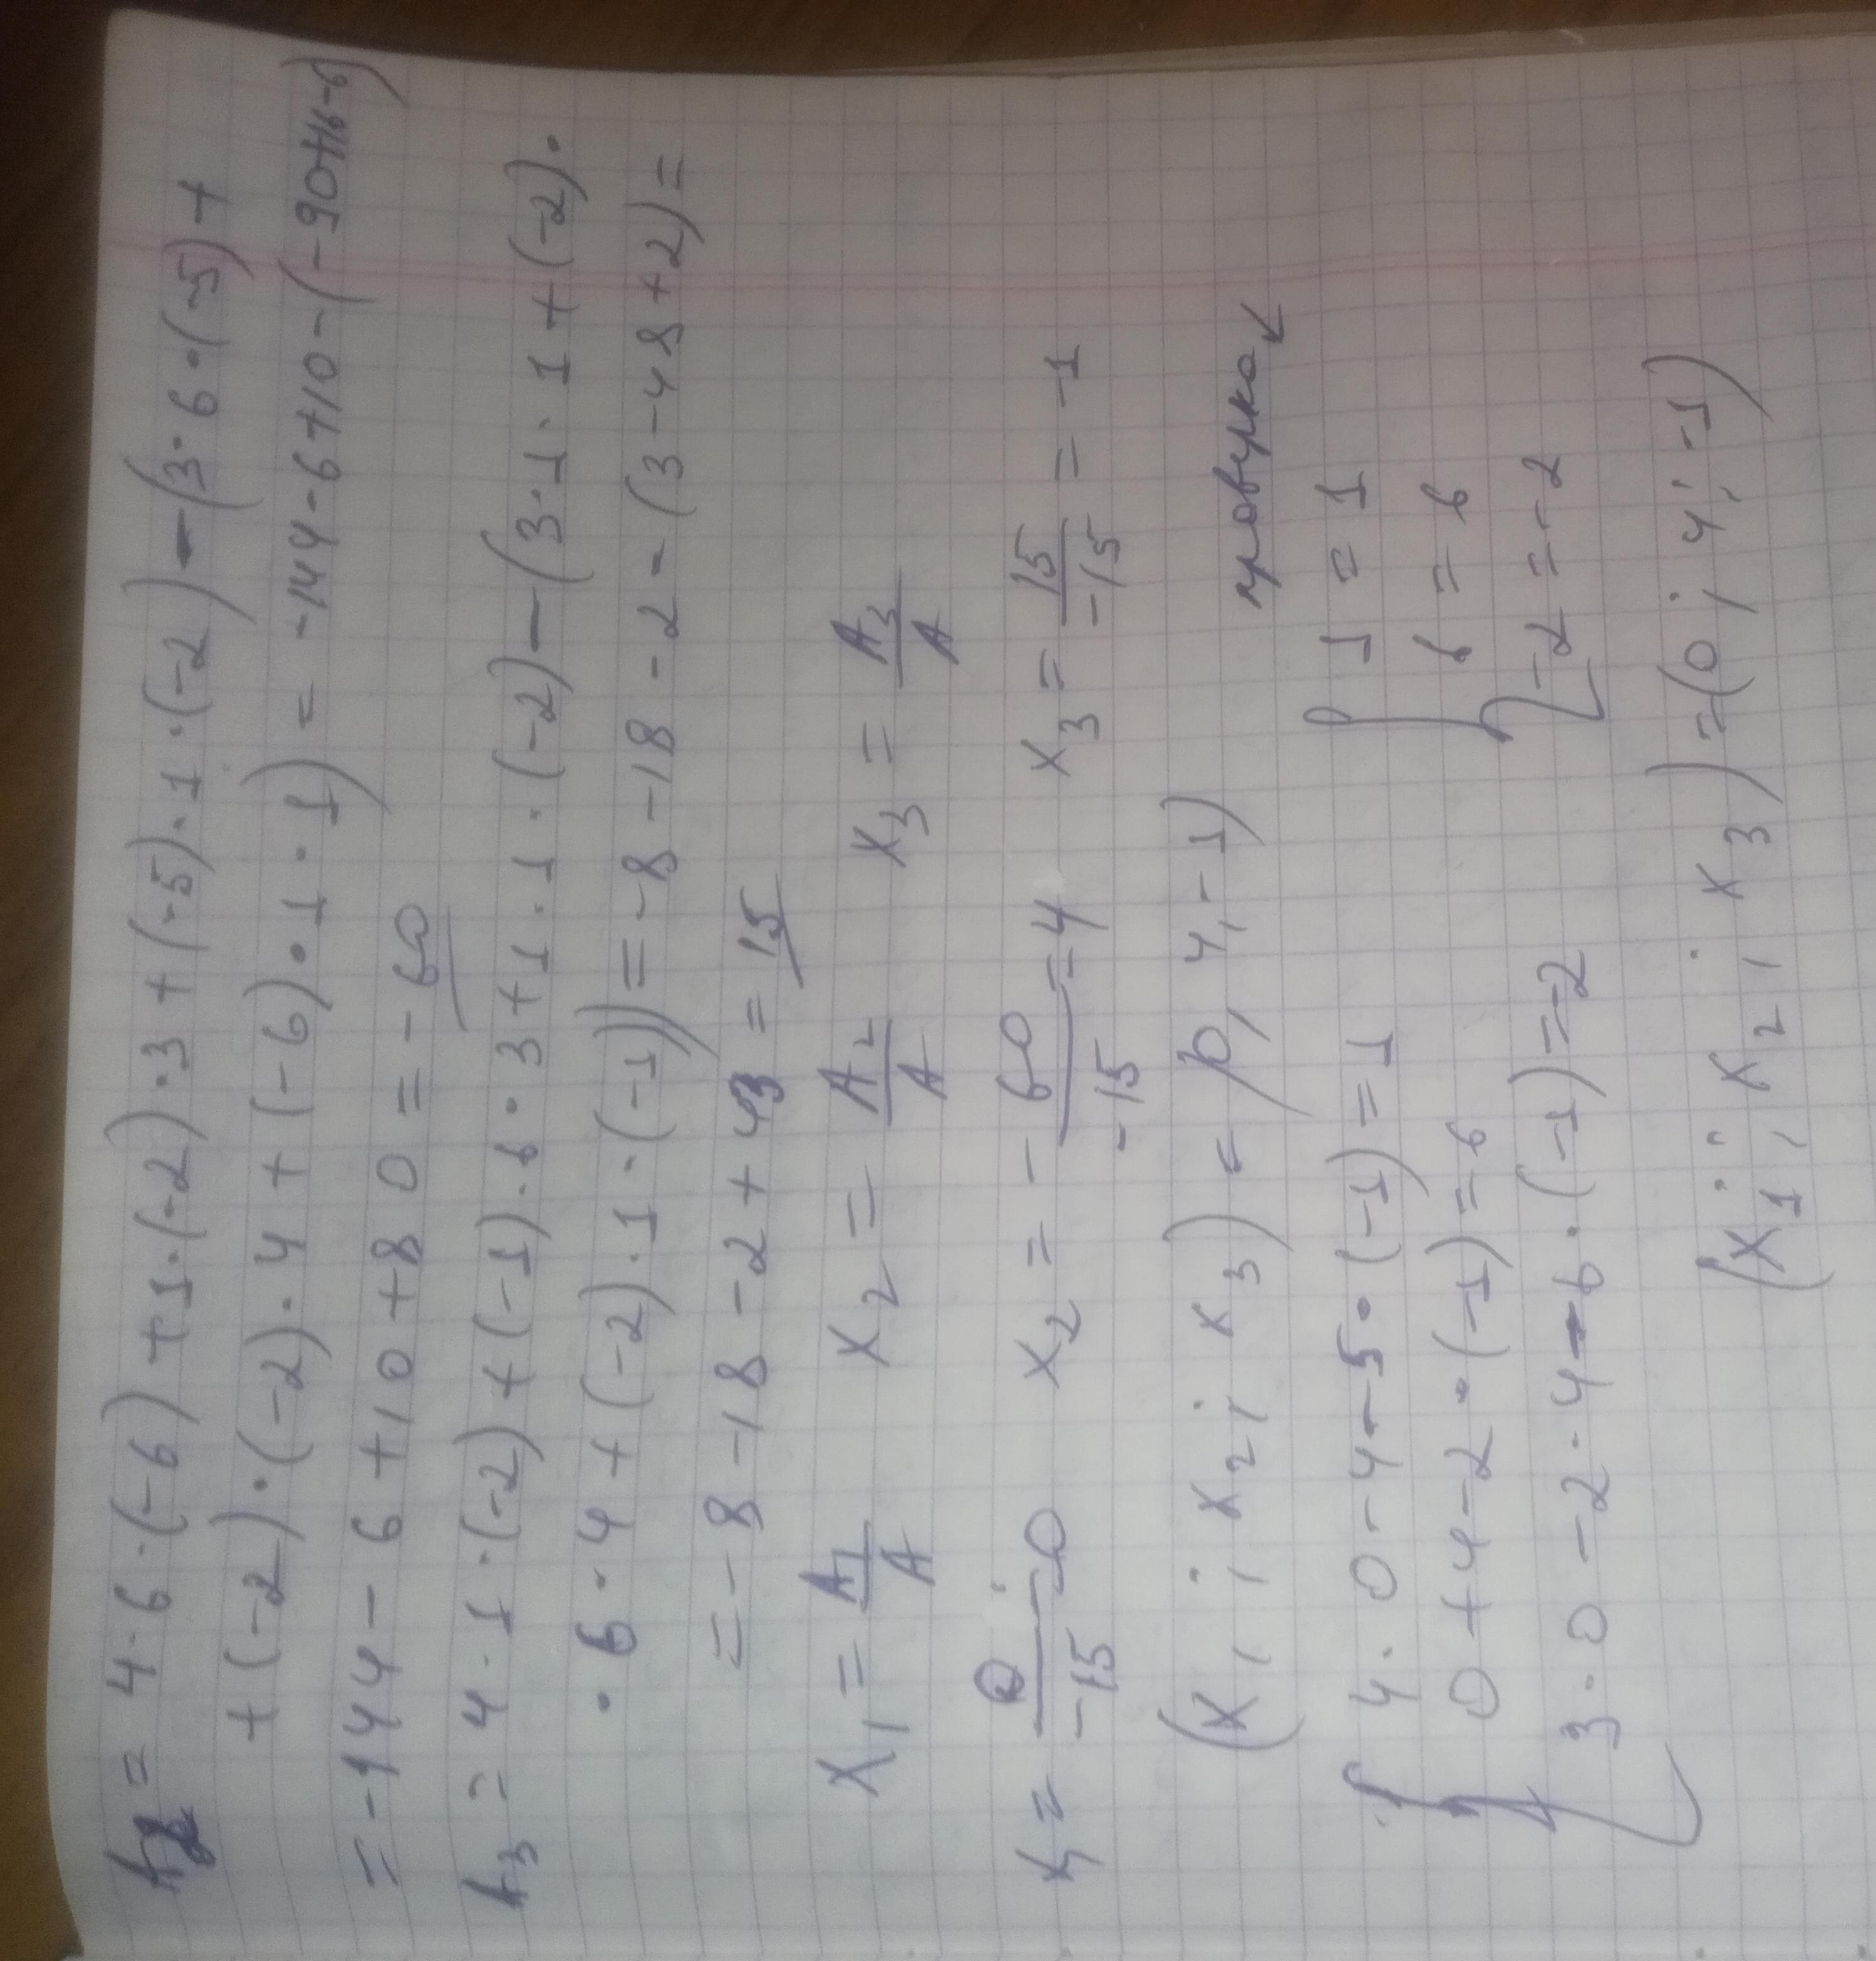 A₂ = 4·6·(-6)+1·(-2)·3+(-5)·1·(-2)-(3·6·(-5)+
+(-2)·(-2)·4+(-6)·1·1) = -144-6+10-(-90+16-6)
= -144-6+10+80 = -60
A₃ = 4·1·(-2)+(-1)·6·3+1·1·(-2)-(3·1·1+(-2)·
·6·4+(-2)·1·(-1)) = -8-18-2-(3-48+2)=
= -8-18-2+43 = 15
x₁ = A₁/A x₂ = A₂/A x₃ = A₃/A
x₁ = 0/-15 = 0 x₂ = -60/-15 = 4 x₃ = 15/-15 = -1
(x₁; x₂; x₃) = (0, 4, -1)
{ 4·0-4-5·(-1)=1 { 1 = 1
0+4-2·(-1)=6 6 = 6
3·0-2·4-6·(-1)=-2 -2 = -2
(x₁; x₂; x₃) = (0; 4; -1)